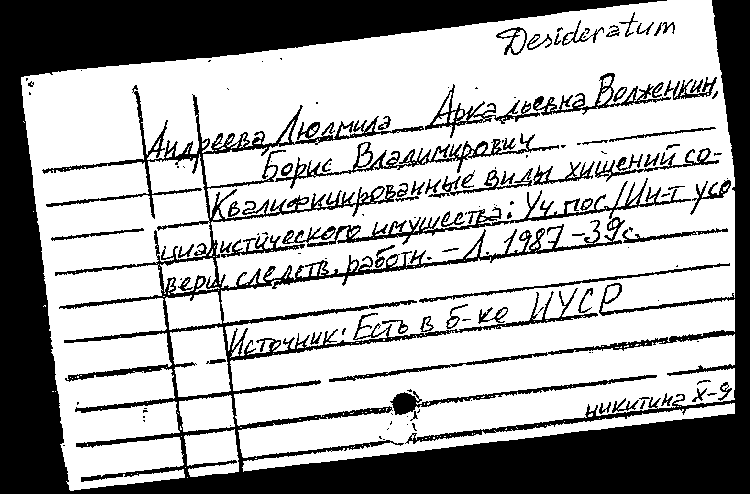 Desideratum
Андреева, Людмила Аркадьевна, Волженкин,
Борис Владимирович
Квалифицированные виды хищений со-
циалистического имущества: Уч. пос. / Ин-т усо-
верш. следств. работн. - Л., 1987 - 39с.
Источник: Есть в б-ке ИУСР
никитина, X-9